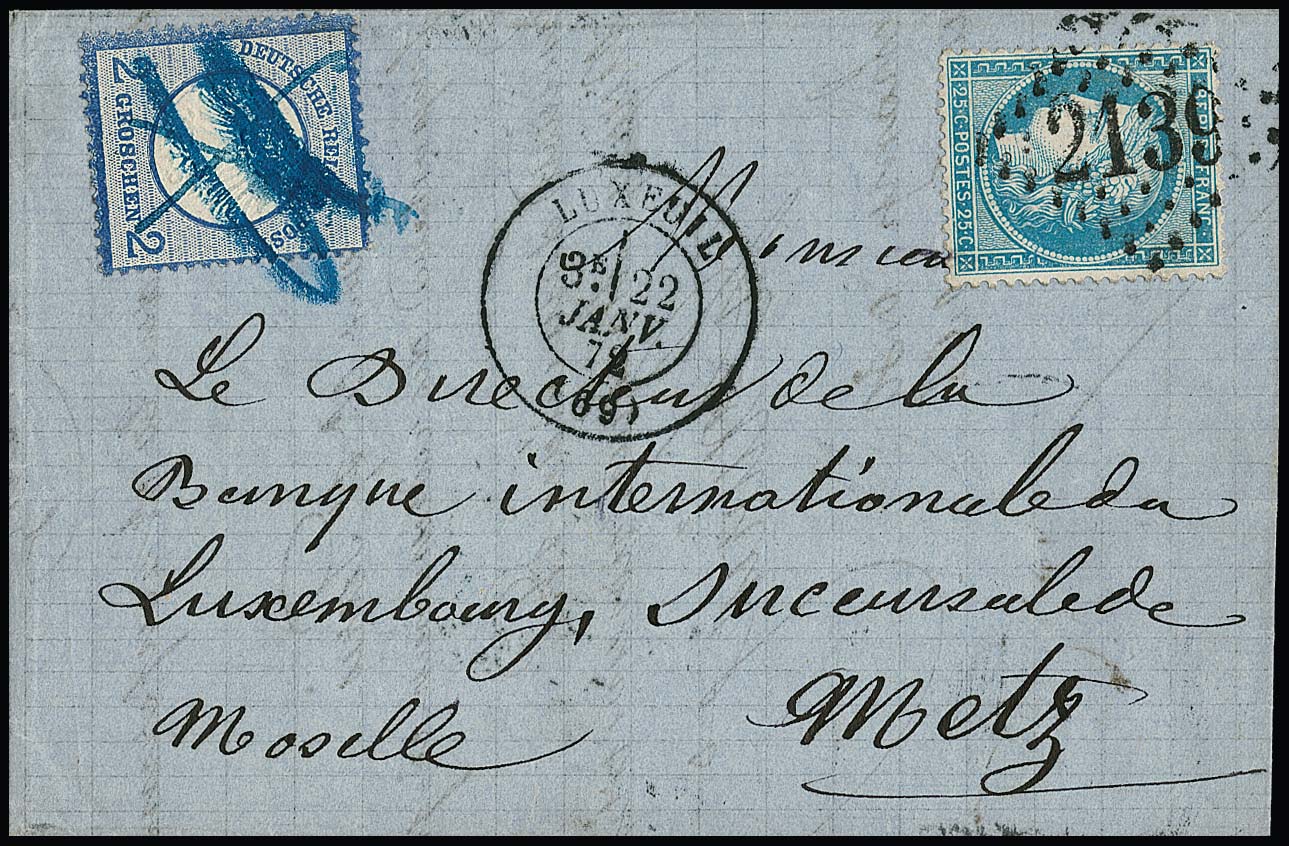 DEUTSCHE
2 GROSCHEN 2
25·C·POSTES·25·C
2139
LUXEUIL
3E 22
JANV.
72
(69)
Monsieur
Le Directeur de la
Banque internationale du
Luxembourg, Succursale de
Metz
Moselle